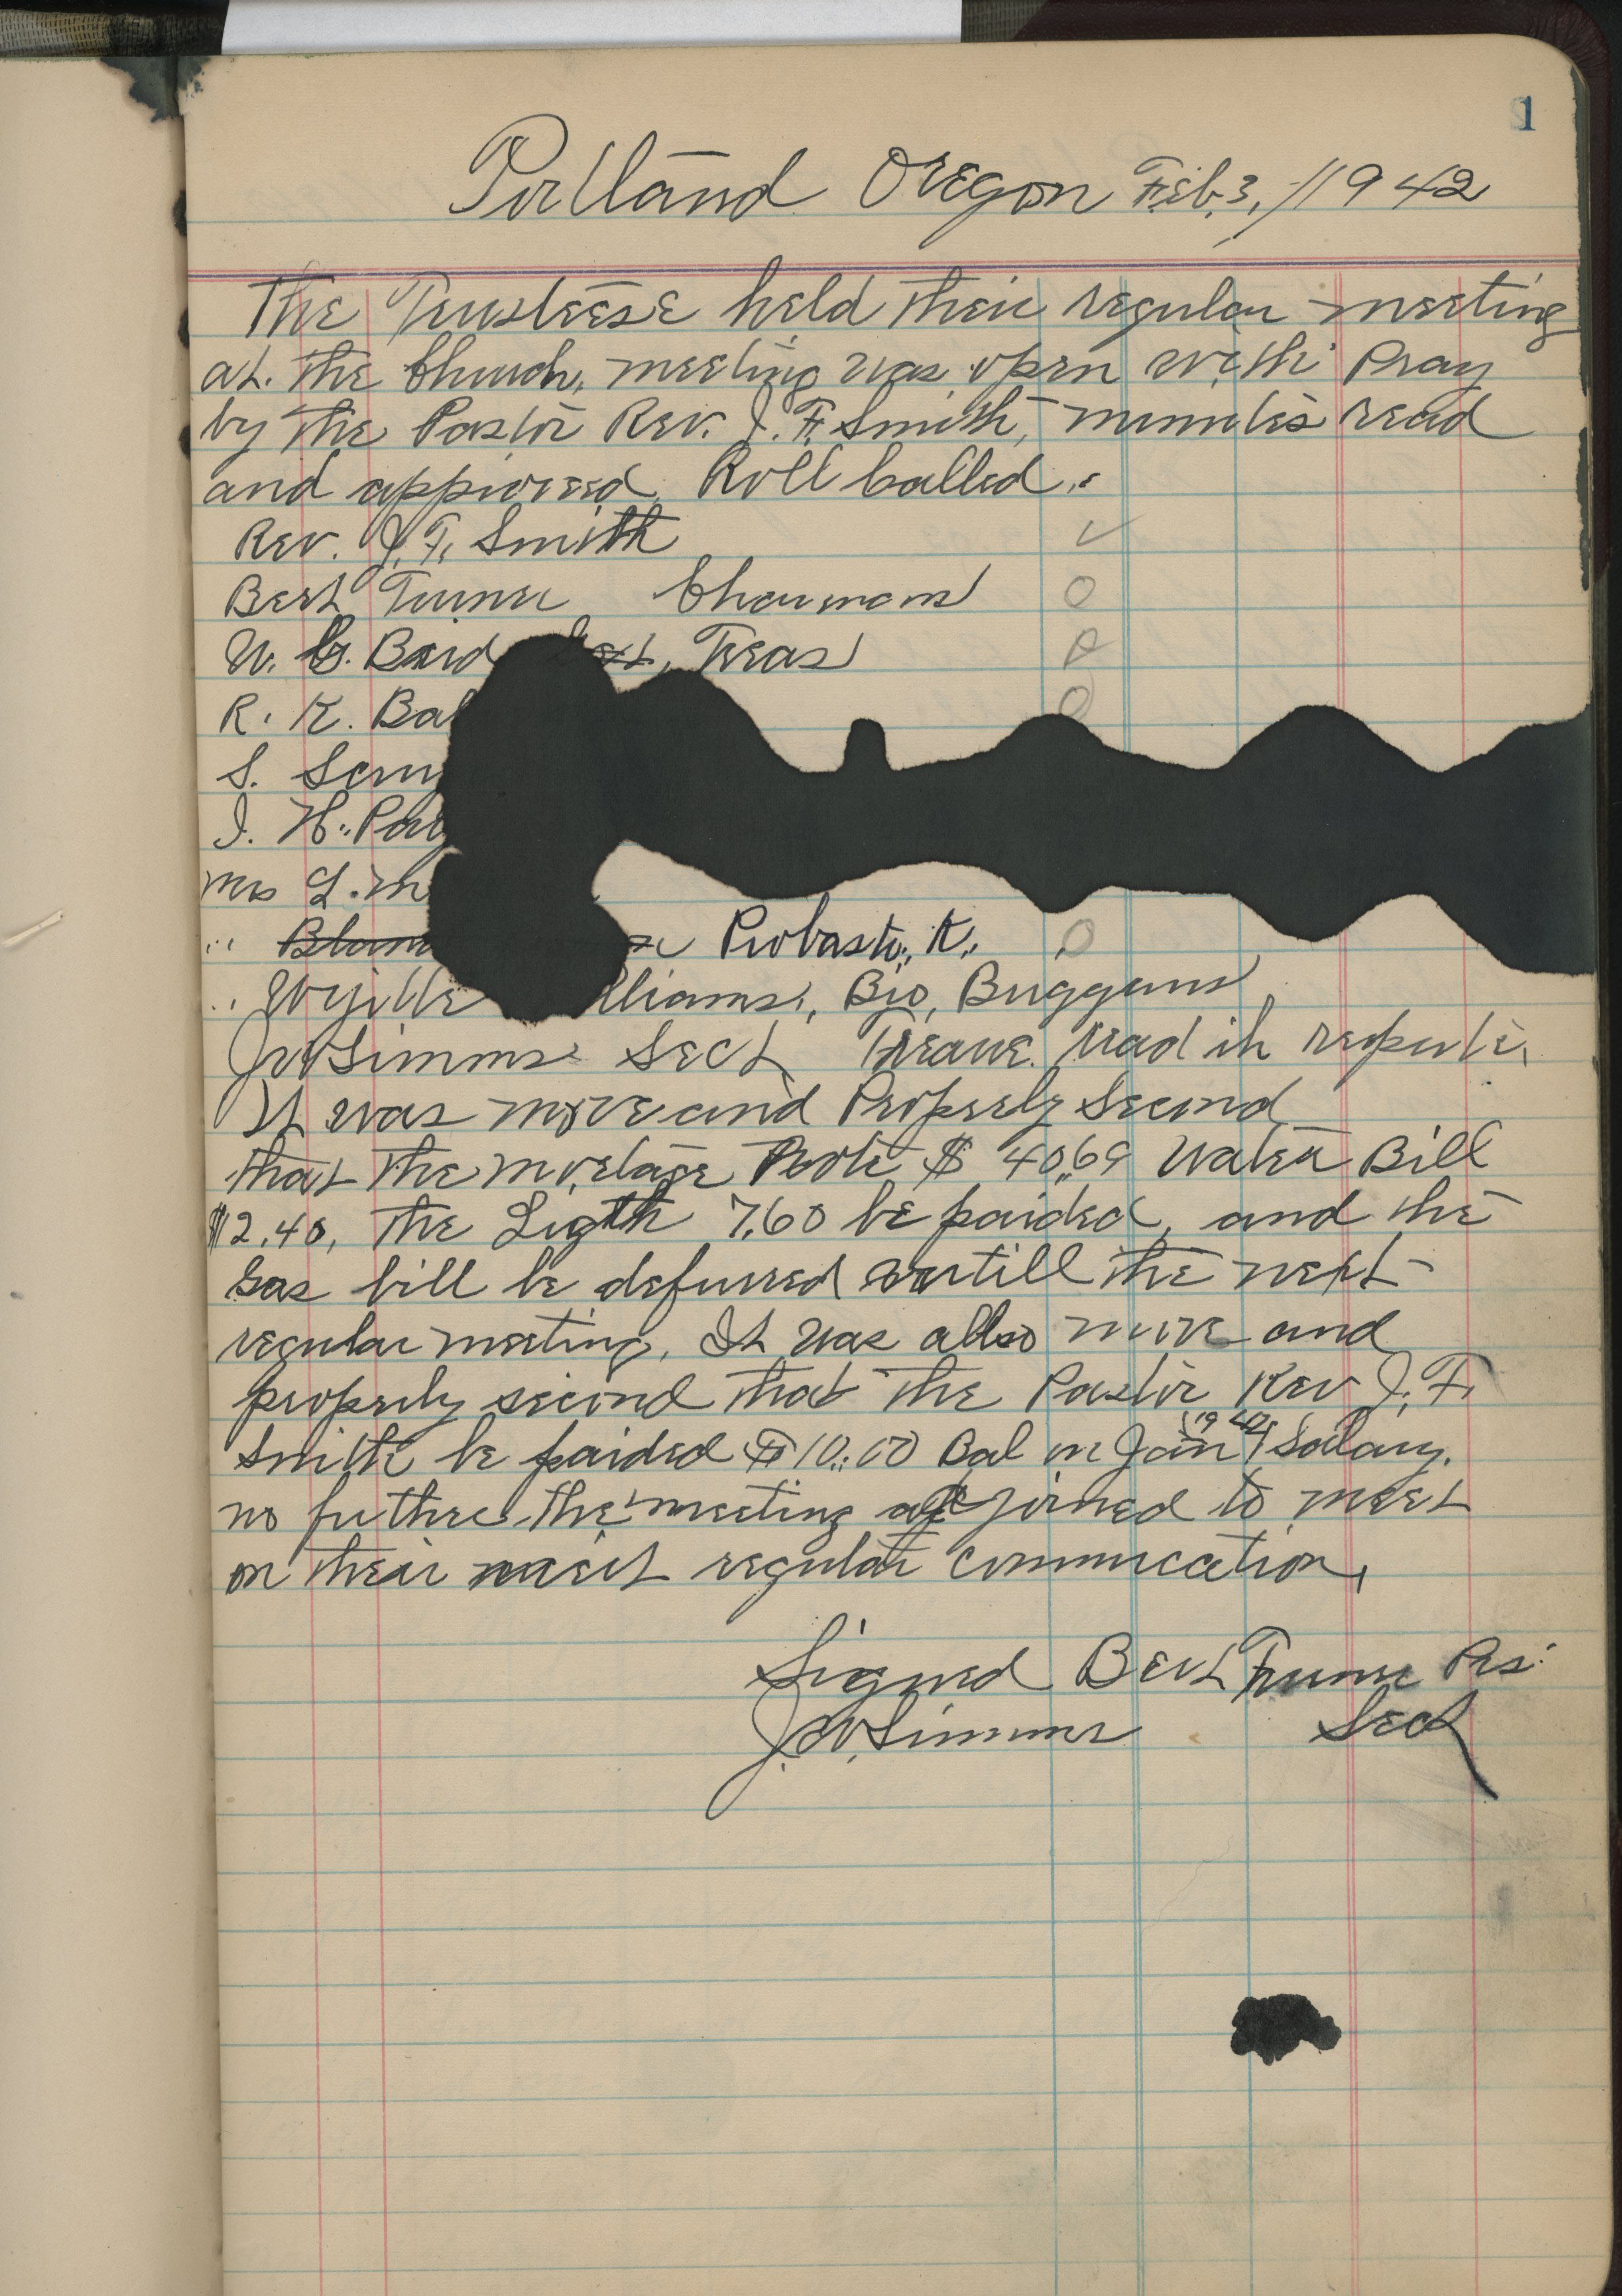 1
Portland Oregon Feb. 3, 1942
The Trusteese held their regular meeting
at. the Church, meeting was open with Pray
by the Pastor Rev. J. F. Smith, minutes read
and approved. Roll Called.
Rev. J. F. Smith ✓
Bert Turner Chairman O
W. G. Baid Treas
R. K. Bal O
S. Scru
J. H. Pay
Mrs L. M
" Blan Probasto, K. O
" Wyille lliams, Bro, Buggans
J W Simms Sect read ih reporte,
It was move and Properly Second
that the moretage Note $ 40,69 Water Bill
$2.40, the Ligth 7.60 be paided, and the
Gas bill be deferred untill the next
regular meeting. It was allso move and
properly second that the Pastor Rev J. F.
Smith be paided $10.00 Bal on Jan 1942 Salary.
no futher the meeting adjorned to meet
on their next regular commucation,
Signed Bert Turner Prs.
J. W. Simms Sect